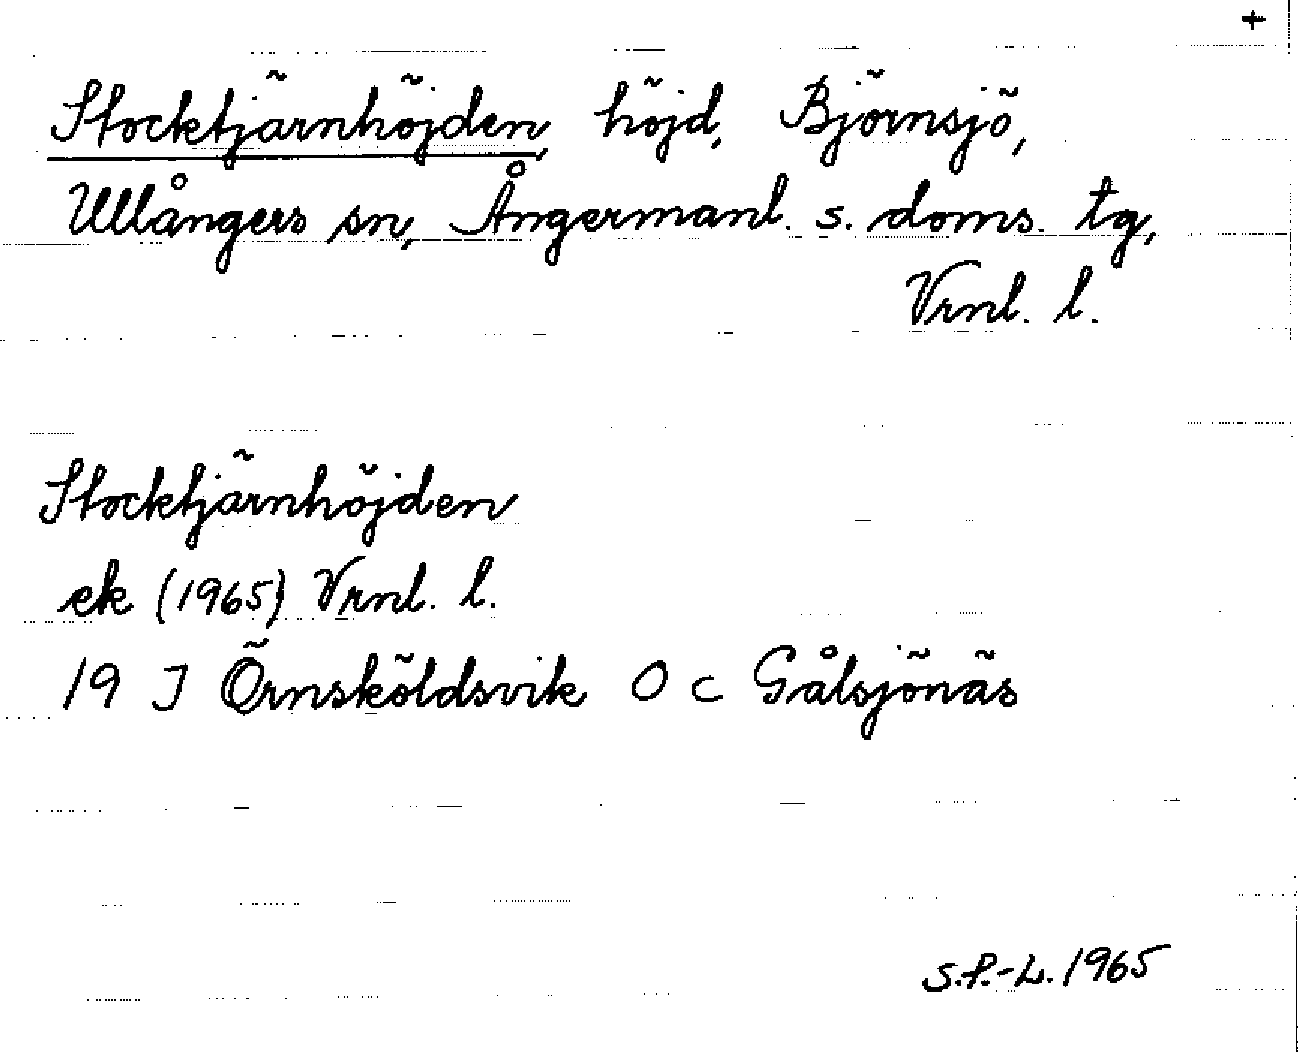 +
Stocktjärnhöjden, höjd, Björnsjö,
Ullångers sn, Ångermanl. s. doms. tg,
Vrnl. l.
Stocktjärnhöjden
ek (1965) Vrnl. l.
19 J Örnsköldsvik O c Gålsjönäs
S.P.-L. 1965